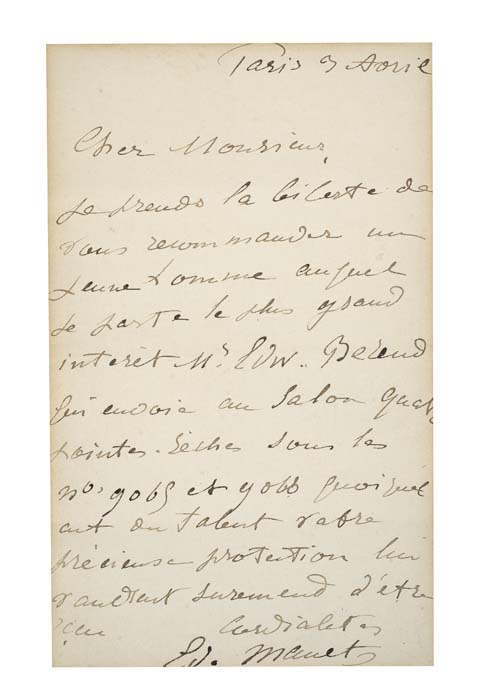 Paris 3 Avril
Cher Monsieur,
Je prends la liberté de
vous recommander un
jeune homme auquel
je porte le plus grand
intérêt Mr. Edw. Berend
qui envoie au Salon quatre
pointes-sèches sous les
nos 9065 et 9066 quoiqu'il
ait du talent votre
précieuse protection lui
vaudrait surement d'être
reçu Cordialités
Ed. Manet